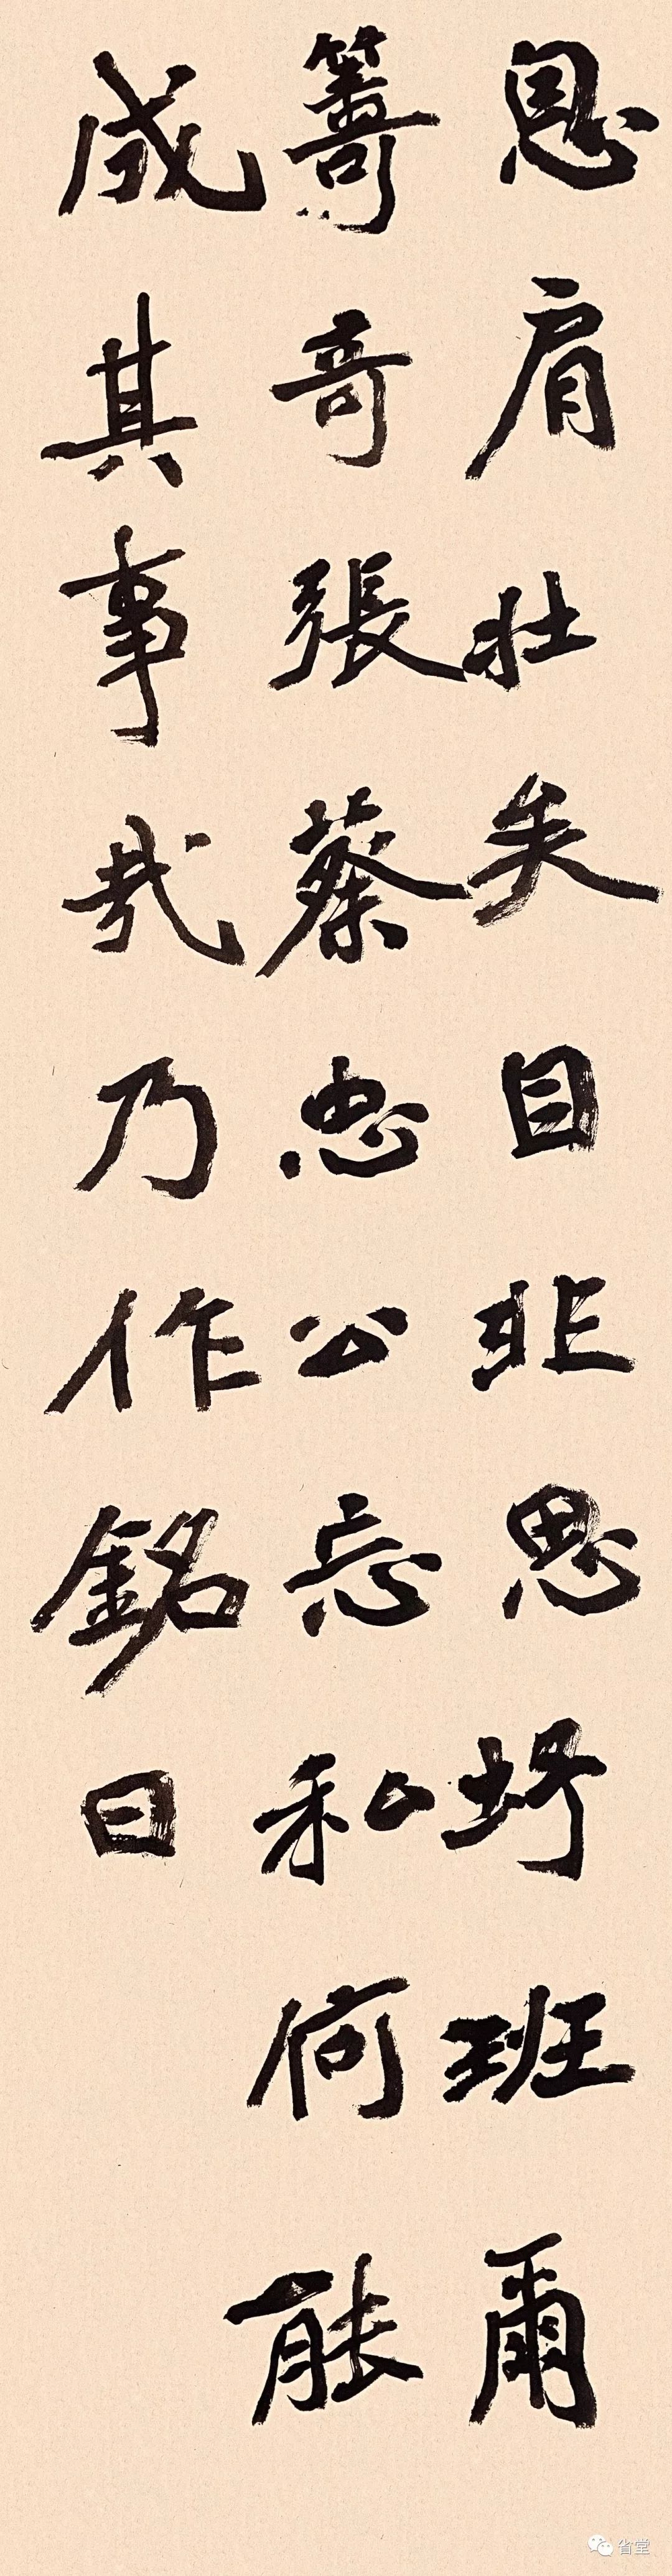 息肩壯矣自非思埒班爾
籌哥張蔡忠公忘私何能
成其事哉乃作銘曰
省堂